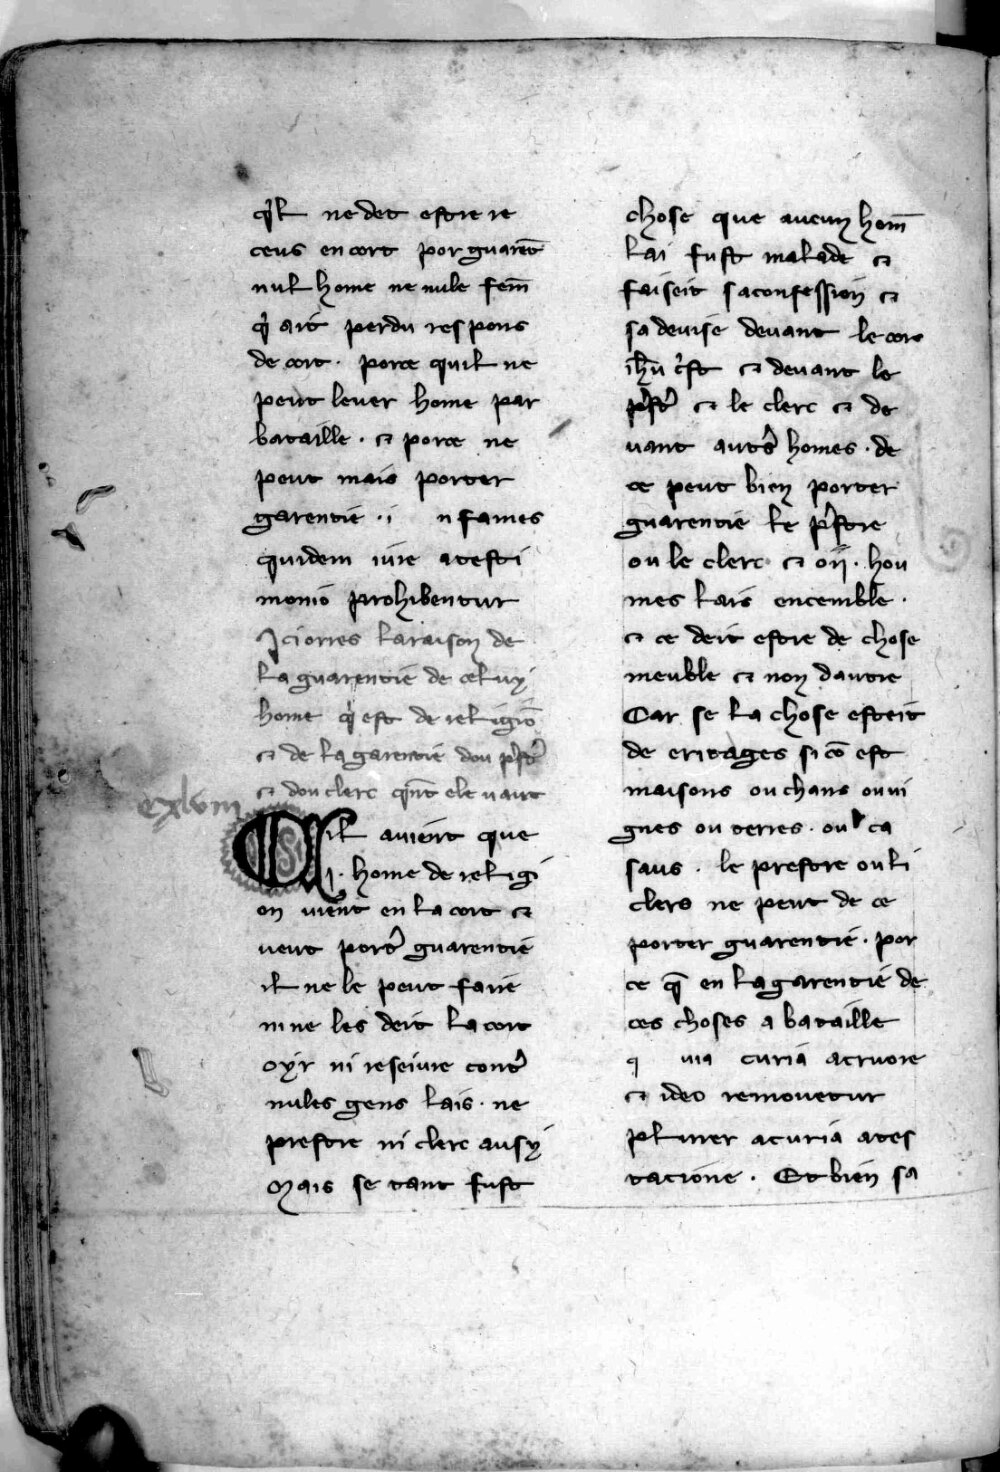 q̇l ne det estre re
ceus en cort por guarẽt
nul home ne nule fem̃
q̇ ait perdu respons
de cort · porce quil ne
peut lever home par
bataille · ⁊ porce ne
peut mais porter
garentie · i n fames
quidem iure atesti
monio prohibentur
Iciorres la raison de
la guarentie de celuy
home q̇ est de religiõ
⁊ de la garentie dou p̃stˀ
⁊ dou clerc q̃nt ele vaut
cxlvııı
Sil avient que
·i· home de religi
on vient en la cort ⁊
veut portˀ guarentie
il ne le peut faire
ni ne les deit la cort
oyr ni reseivre contˀ
nules gens lais · ne
prestre ni clerc ausy
Mais se tant fust
chose que aucun hom̃
lai fust malade ⁊
faiseit sa confession ⁊
sa devise devant le cors
ih̃u c̓st ⁊ devant le
p̃stˀ ⁊ le clerc ⁊ de
vant autˀs homes · de
ce peut bien porter
guarentie le p̃stre
ou le clerc ⁊ o ij · hou
mes lais encemble ·
⁊ ce deit estre de chose
meuble ⁊ non dautre
Car se la chose esteit
de eritages si cõ est
maisons ou chans ou vi
gnes ou terres · ou ca
saus · le prestre ou li
clers ne peut de ce
porter guarentie · por
ce q̃ en la garentie de
ces choses a bataille
q via curia acruore
⁊ ideo removetur
plurer a curia ates
tacione · Et bien sa